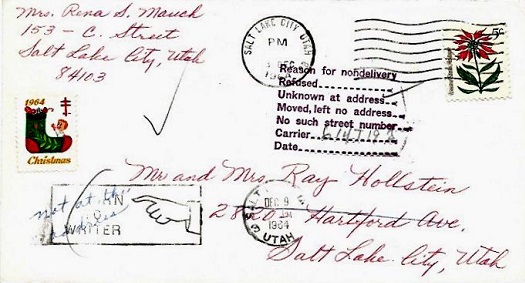 Mrs. Rena S. Mauch
153 - C. Street
Salt Lake City, Utah
84103
SALT LAKE CITY, UTAH
PM
DEC
5c
1964
Christmas
Reason for nondelivery
Refused
Unknown at address
Moved, left no address
No such street number
Carrier
Date
Mr and Mrs. Ray Hollstein
2820 - Hartford Ave.
Salt Lake City, Utah
not at this
address
WRITER
DEC 9
1964
UTAH